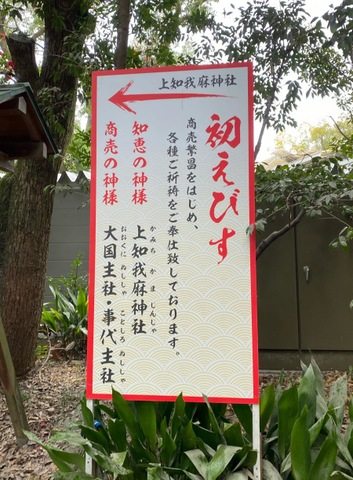 上知我麻神社
初えびす
商売繁昌をはじめ、
各種ご祈祷をご奉仕致しております。
知恵の神様 上知我麻神社
かみちかまじんじゃ
商売の神様 大国主社・事代主社
おおくにぬししゃ ことしろぬししゃ